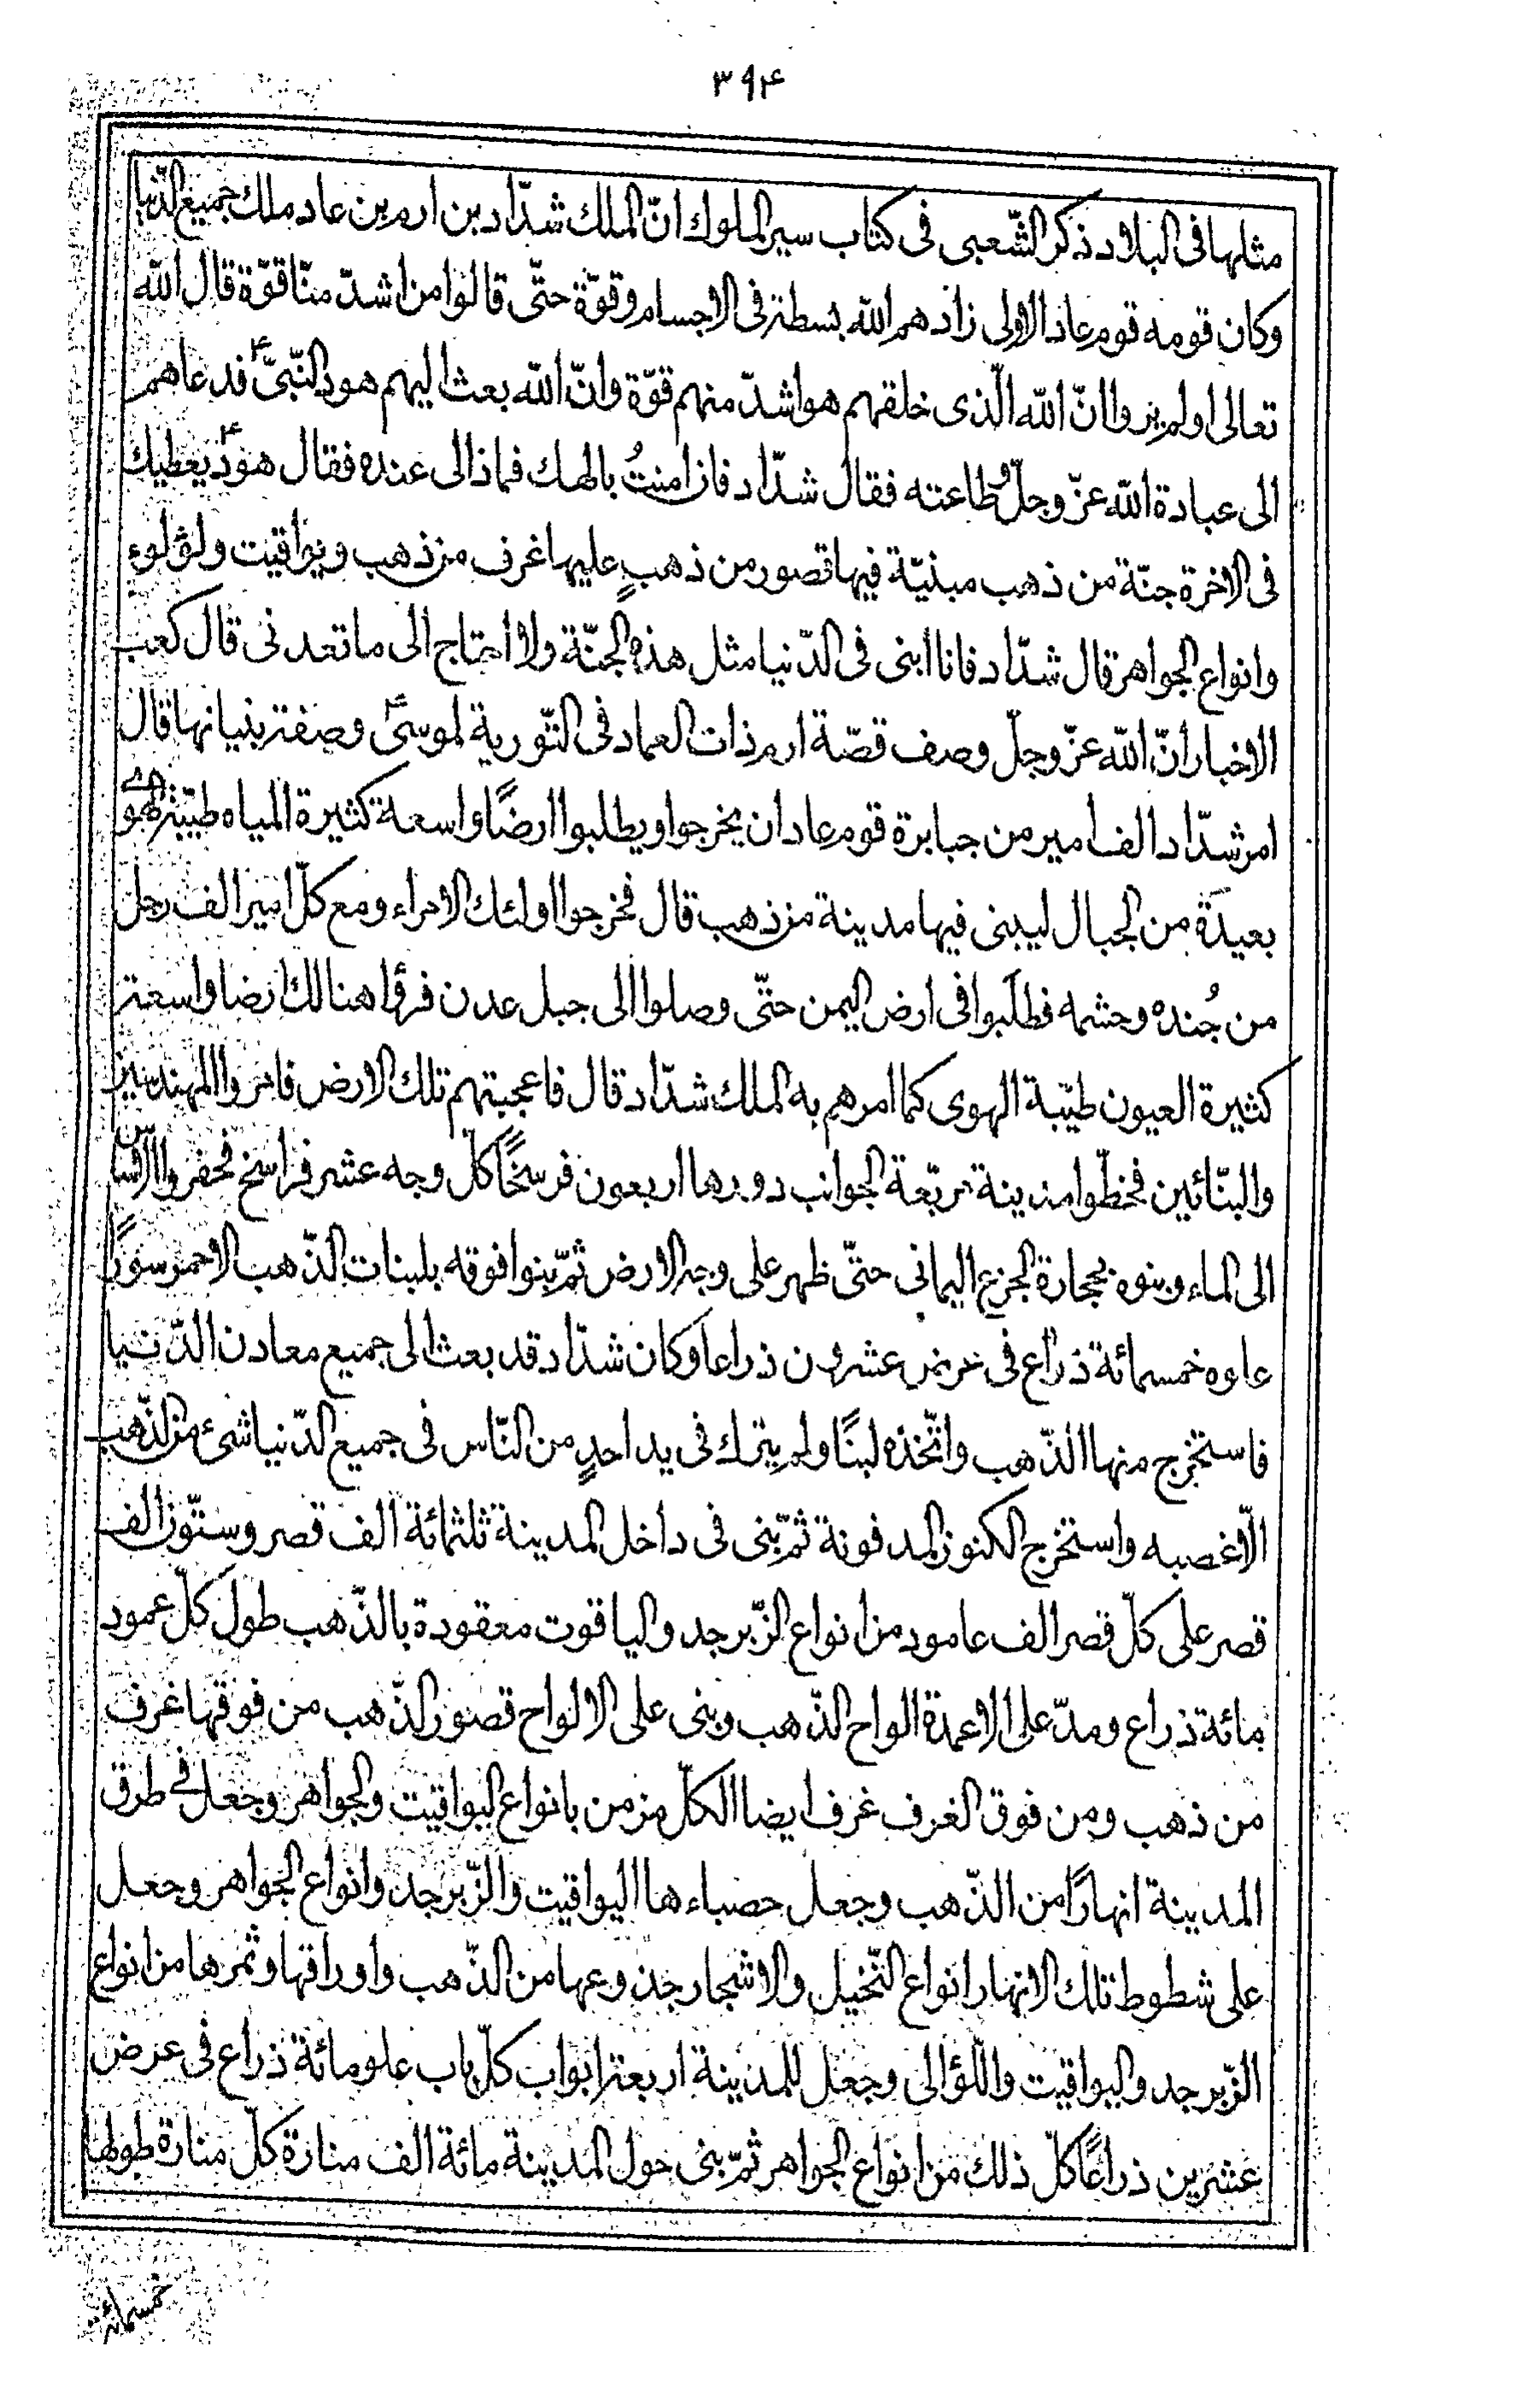 ٣٩٤
مثلها فى البلاد ذكر الشّعبى فى كتاب سير الملوك انّ الملك شدّاد بن ارم بن عاد ملك جميع الدّنيا
وكان قومه قوم عاد الاولى زادهم الله بسطة فى الاجسام وقوّة حتّى قالوا من اشدّ منّا قوّة قال الله
تعالى اولم يروا انّ الله الّذى خلقهم هو اشدّ منهم قوّة وانّ الله بعث اليهم هود النّبىّ ع فدعاهم
الى عبادة الله عزّ وجلّ وطاعته فقال شدّاد فان امنتُ بالهك فماذا لى عنده فقال هود ع يعطيك
فى الاخرة جنّة من ذهب مبنيّة فيها قصور من ذهبٍ عليها غرف من ذهب ويواقيت ولؤلوء
وانواع الجواهر قال شدّاد فانا ابنى فى الدّنيا مثل هذه الجنّة ولا احتاج الى ما تعدنى قال كعب
الاخبار انّ الله عزّ وجلّ وصف قصّة ارم ذات العماد فى التّورية لموسى ع وصفة بنيانها قال
امر شدّاد الف امير من جبابرة قوم عاد ان يخرجوا ويطلبوا ارضًا واسعة كثيرة المياه طيّبة الهوى
بعيدَة من الجبال ليبنى فيها مدينة من ذهب قال فخرجوا اولئك الامراء ومع كلّ امير الف رجل
من جُنده وحشمه فطلَبوا فى ارض اليمن حتّى وصلوا الى جبل عدن فرأوا هنالك ارضا واسعة
كثيرة العيون طيّبة الهوى كما امرهم به الملك شدّاد قال فاعجبتهم تلك الارض فامروا المهندسين
والبنّائين فخطّوا مدينة مربّعة الجوانب دورها اربعون فرسخًا كلّ وجه عشر فراسخ فحفروا الاساس
الى الماء وبنوه بحجارة الجزع اليمانى حتّى ظهر على وجه الارض ثمّ بنوا فوقه بلبنات الذّهب الاحمر سورًا
علوه خمسمائة ذراع فى عرض عشرون ذراعا وكان شدّاد قد بعث الى جميع معادن الدّنيا
فاستخرج منها الذّهب واتّخذه لبنًا ولم يترك فى يد احدٍ من النّاس فى جميع الدّنيا شئ من الذّهب
الّا غصبه واستخرج الكنوز المدفونة ثمّ بنى فى داخل المدينة ثلثمائة الف قصر وستّون الف
قصر على كلّ قصر الف عامود من انواع الزّبرجد والياقوت معقودة بالذّهب طول كلّ عمود
مائة ذراع ومدّ على الاعمدة الواح الذّهب وبنى على الالواح قصور الذّهب من فوقها غرف
من ذهب ومن فوق الغرف غرف ايضا الكلّ مزمن بانواع اليواقيت والجواهر وجعل فى طرق
المدينة انهارًا من الذّهب وجعل حصباءها اليواقيت والزّبرجد وانواع الجواهر وجعل
على شطوط تلك الانهار انواع النّخيل والاشجار جذوعها من الذّهب واوراقها وثمرها من انواع
الزّبرجد واليواقيت واللّؤالى وجعل للمدينة اربعة ابواب كلّ باب علو مائة ذراع فى عرض
عشرين ذراعًا كلّ ذلك من انواع الجواهر ثمّ بنى حول المدينة مائة الف منارة كلّ منارة طولها
خمسمائة